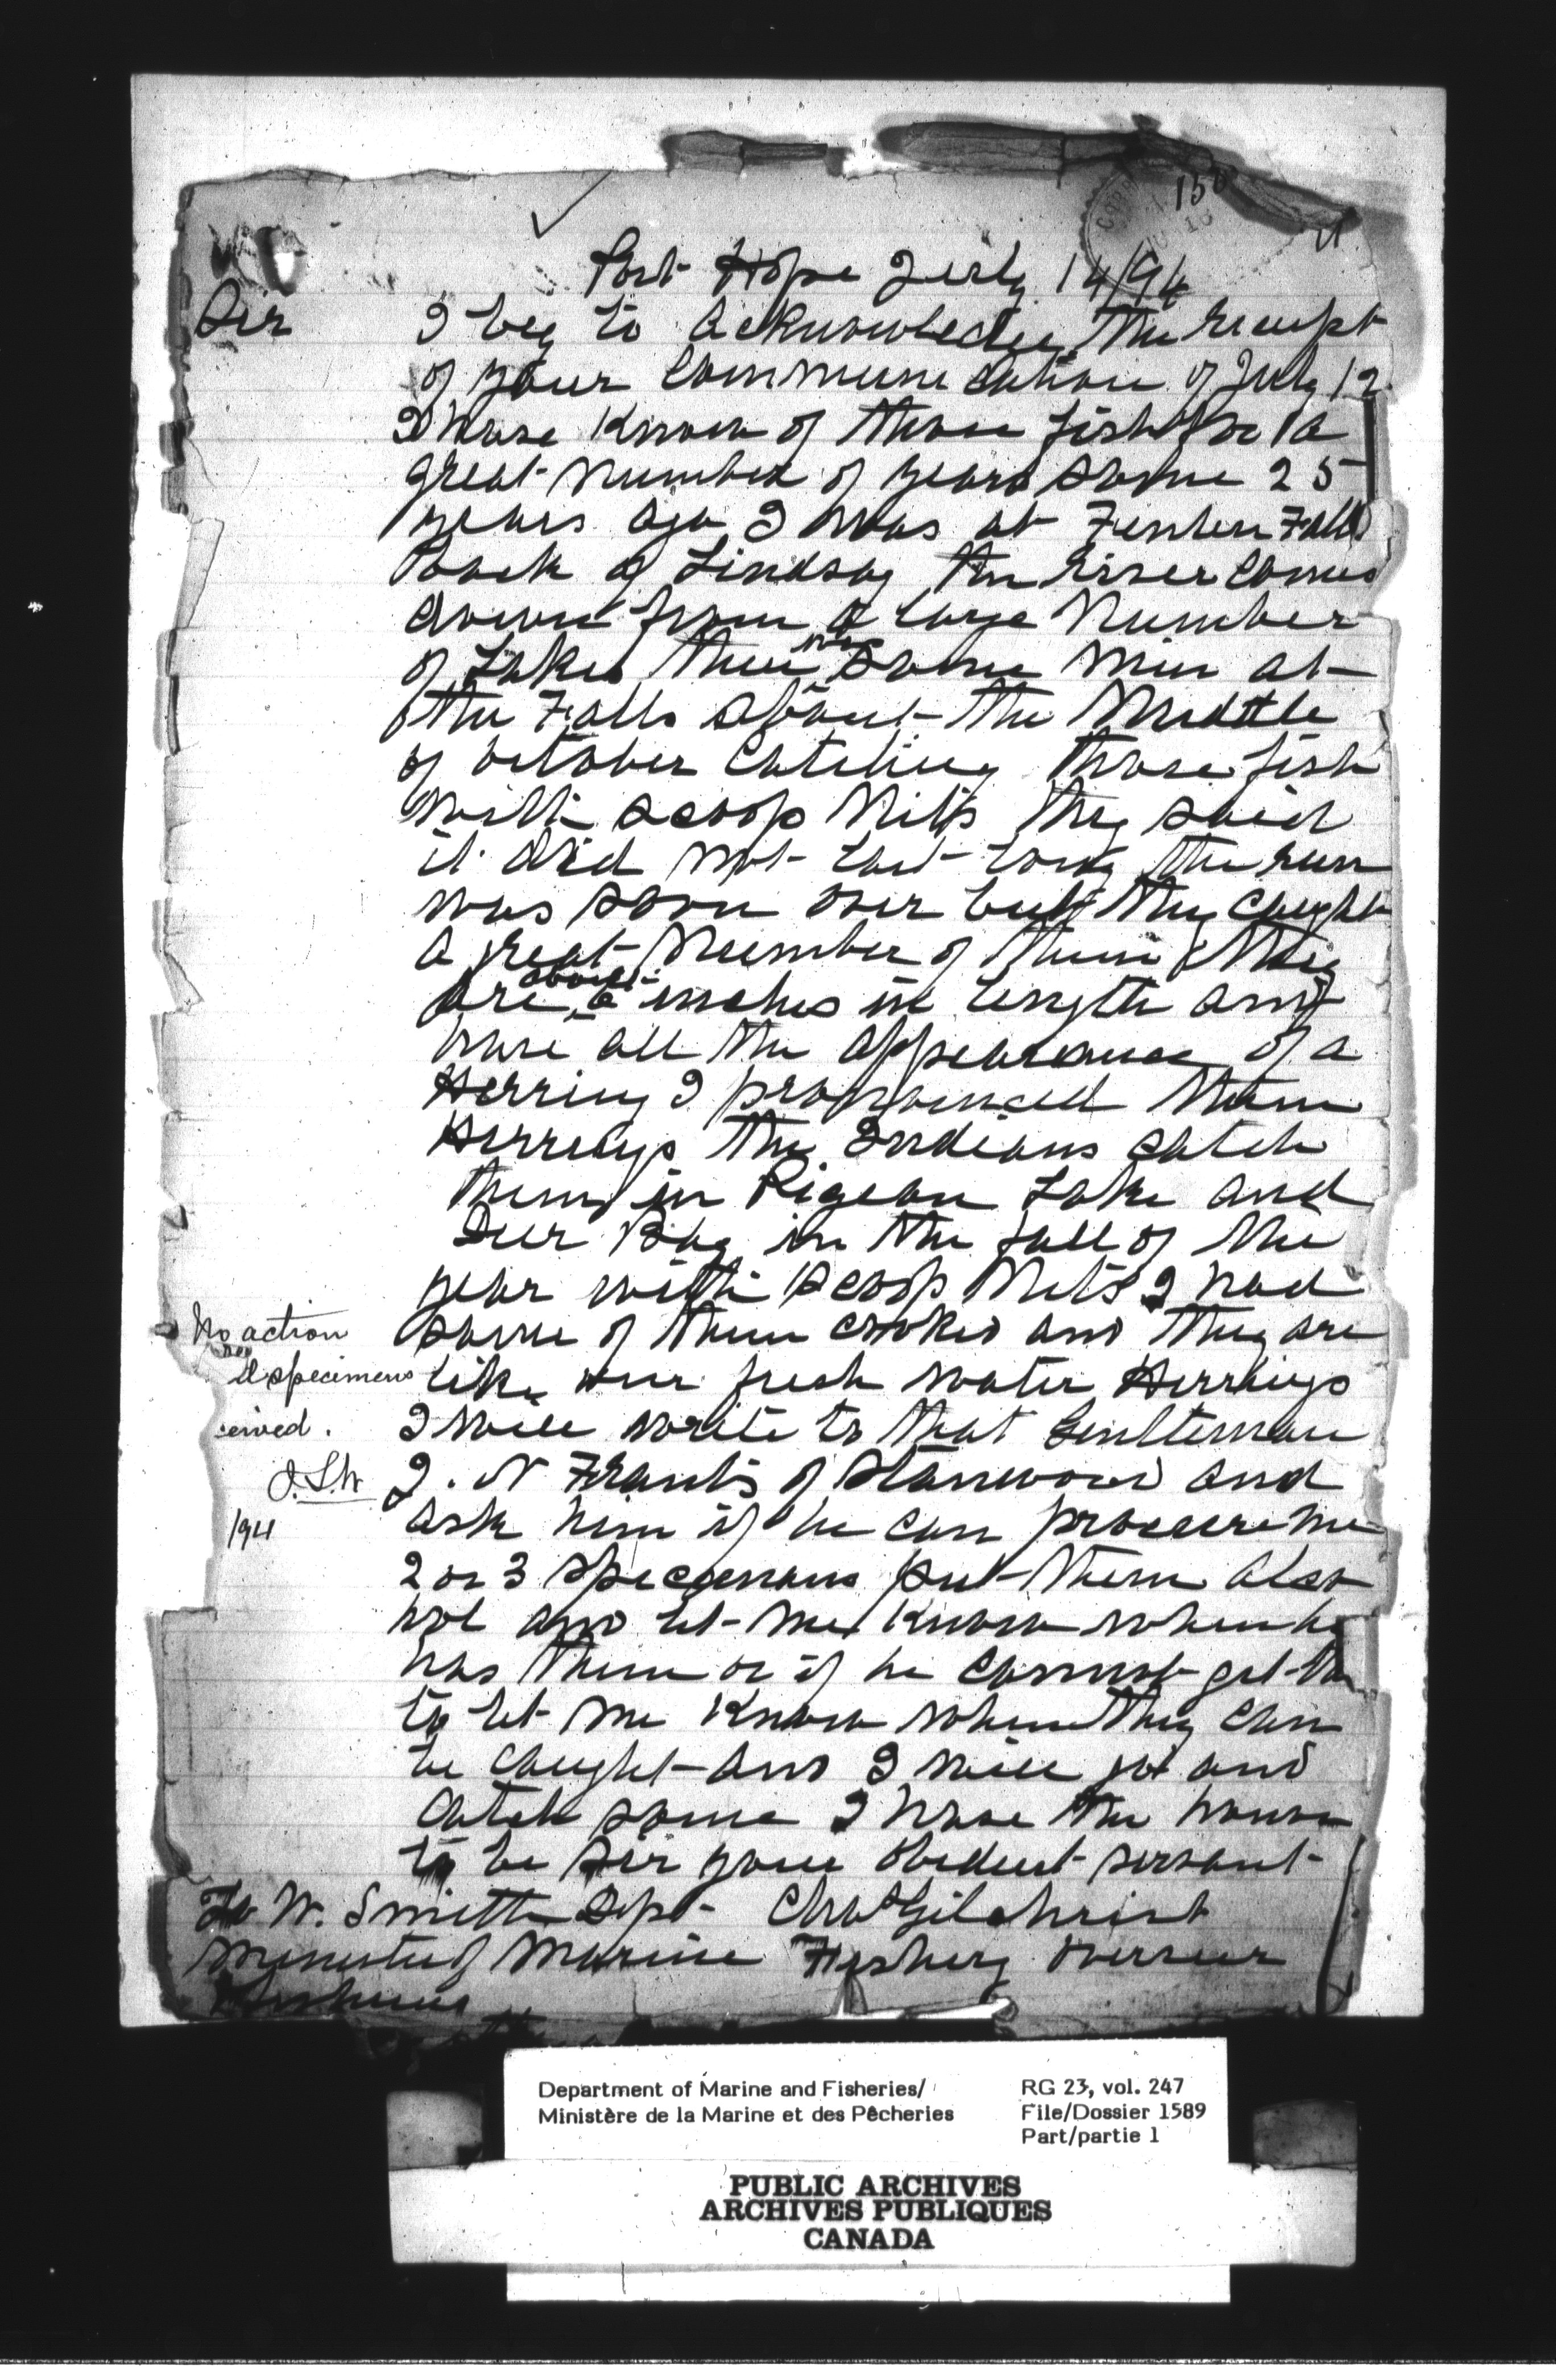 150
Port Hope July 14/94
Sir I beg to acknowledge the receipt
of your Communication of July 12
I have Known of those fish for a
great number of years some 25
years ago I was at Fenlen Falls
back of Lindsay the river comes
down from a large Number
of Lakes there was some men at
the Falls about the Middle
of October Catching those fish
with scoop Nets they said
it did not last long the run
was soon over but they caught
a great Number of them they
are about 6 inches in length and
have all the appearance of a
Herring I pronounced them
Herrings the Indians catch
them in Pigeon Lake and
Deer Bay in the fall of the
year with scoop Nets I had
some of them cooked and they are
like our fresh water Herrings
I will write to that Gentleman
J. N Frants of Stanwood and
ask him if he can procure me
2 or 3 specimens put them
and let me Know when he
has them or if he cannot get
to let me Know where they can
be caught and I will go and
catch some I have the honour
to be sir your obedient servant
To W. Smith Dept Chas Gilchrist
Minister of Marine Fishery Overseer
Fisheries
No action
specimens
ceived.
194
Department of Marine and Fisheries/
Ministère de la Marine et des Pêcheries
RG 23, vol. 247
File/Dossier 1589
Part/partie 1
PUBLIC ARCHIVES
ARCHIVES PUBLIQUES
CANADA